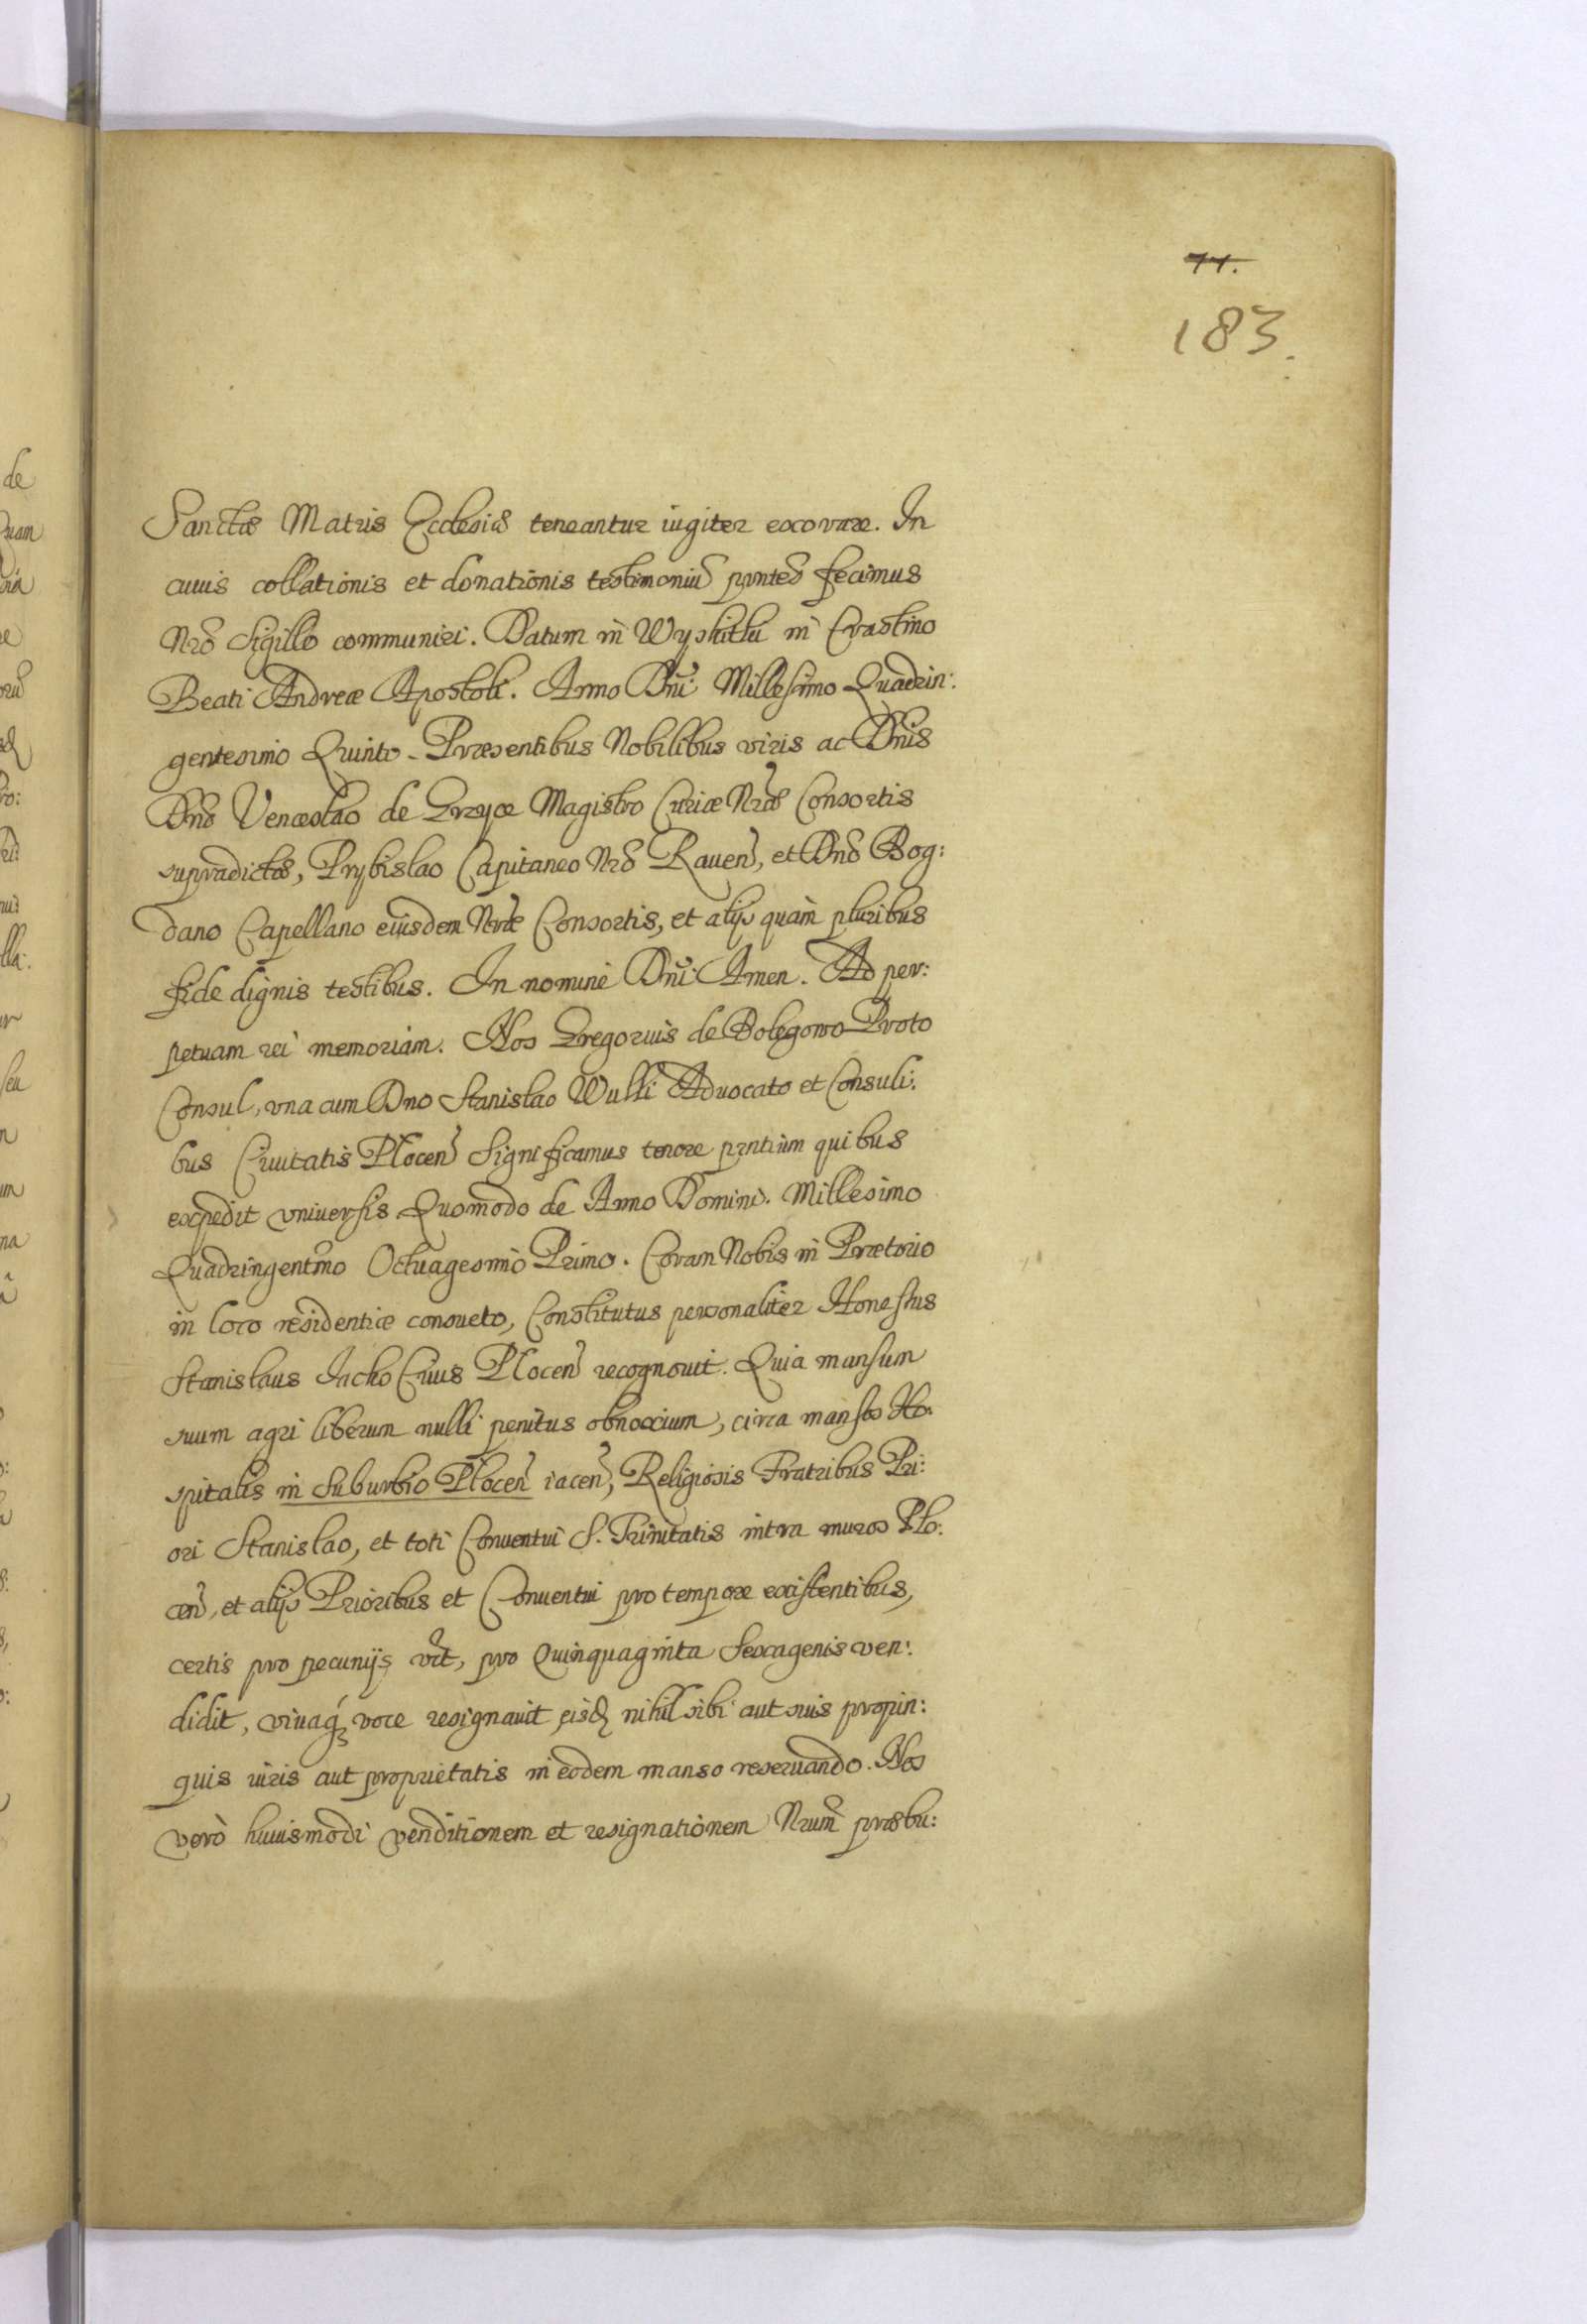 77.
183.
Sanctæ Matris Ecclesiæ teneantur iugiter exorare. In
cuius collationis et donationis testimoniũ pῥntes fecimus
Nrõ Sigillo communiri. Datum in Wyskitki in Crastino
Beati Andreæ Apostoli. Anno Dñi Millesimo Quadrin:
gentesimo Quinto. Præsentibus Nobilibus viris ac Dñis
Dño Venceslao de Grzyce Magistro Curiæ Nræ Consortis
supradictæ, Prybislao Capitaneo Nrõ Raueñ, et Dño Bog:
dano Capellano eiusdem Nræ Consortis, et alijs quàm pluribus
fide dignis testibus. In nomine Dñi Amen. Ad per:
petuam rei memoriam. Nos Gregorius de Bolegowo Proto
Consul, vna cum Dno Stanislao Wulki Aduocato et Consuli:
bus Ciuitatis Ploceñ Significamus tenore prntium quibus
expedit vniuersis Quomodo de Anno Domini. Millesimo
Quadringentm̃o Octuagesimo Primo. Coram Nobis in Prætorio
in loco residentiæ consueto, Constitutus personaliter Honestus
Stanislaus Jacko Ciuis Ploceñ recognouit. Quia mansum
suum agri liberum nulli penitus obnoxium, circa mansos Ho:
spitalis in Suburbio Ploceñ iaceñ, Religiosis Fratribus Pri:
ori Stanislao, et toti Conuentui S. Trinitatis intra muros Plo:
ceñ, et alijs Prioribus et Conuentui pro tempore existentibus,
certis pro pecunijs vt̃, pro Quinquaginta Sexagenis ven:
didit, viuaq́ꝫ voce resignauit eisđ nihil sibi aut suis propin:
quis iuris aut proprietatis in eodem manso reseruando. Nos
verò huiusmodi venditionem et resignationem Nrum̃ præbu: